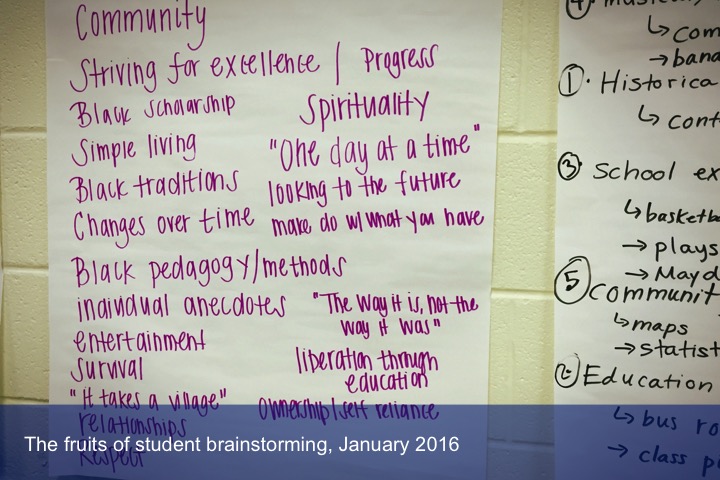 Community
Striving for excellence | Progress
Black scholarship
Spirituality
Simple living
"One day at a time"
Black traditions
looking to the future
Changes over time
make do w/ what you have
Black pedagogy/methods
individual anecdotes
"The way it is, not the
way it was"
entertainment
Survival
liberation through
education
"It takes a village"
Ownership/self reliance
relationships
Respect
4. Musical
↳ com
→ band
1. Historica
↳ cont
3. School ex
↳ basketba
→ plays
→ May d
5 Communit
↳ maps
→ statist
2. Education
↳ bus ro
→ class p
The fruits of student brainstorming, January 2016